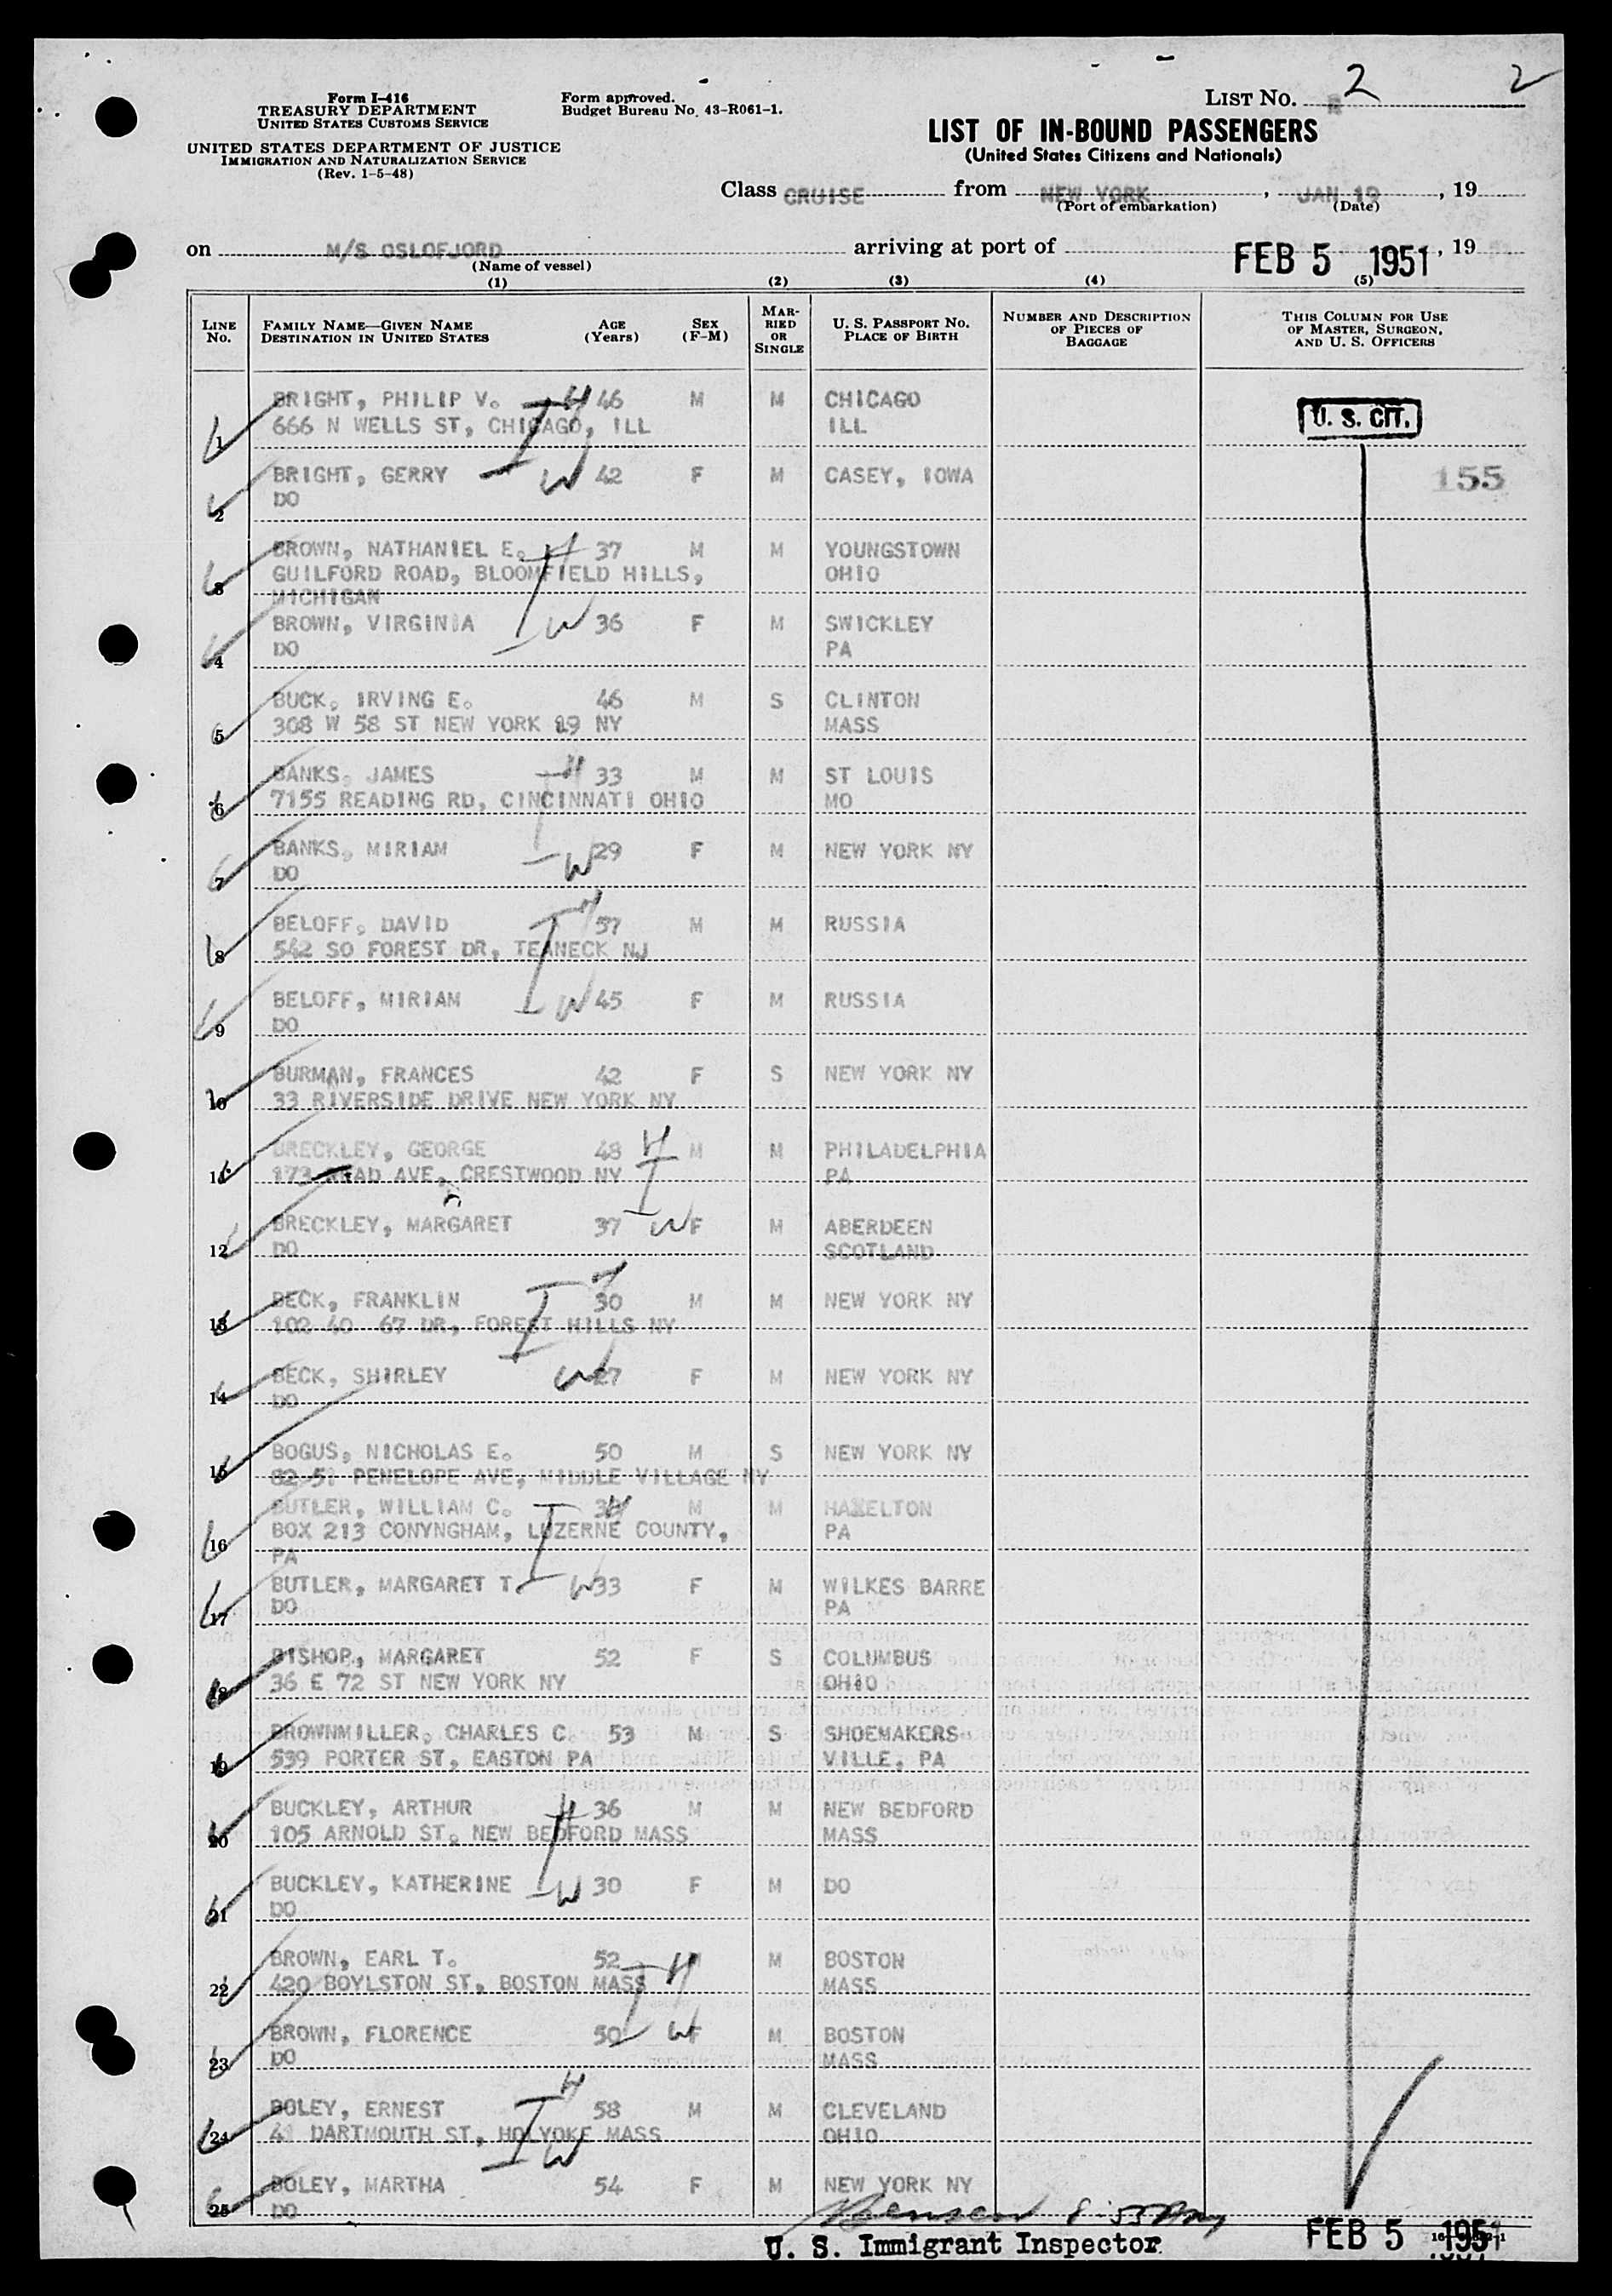 Form I-416
TREASURY DEPARTMENT
UNITED STATES CUSTOMS SERVICE
UNITED STATES DEPARTMENT OF JUSTICE
IMMIGRATION AND NATURALIZATION SERVICE
(Rev. 1-5-48)
Form approved.
Budget Bureau No. 43-R061-1.
LIST NO. 2
2
LIST OF IN-BOUND PASSENGERS
(United States Citizens and Nationals)
Class CRUISE from NEW YORK, JAN 19, 19
(Port of embarkation) (Date)
on M/S OSLOFJORD arriving at port of FEB 5 1951, 19
(Name of vessel)
(1) (2) (3) (4) (5)
LINE NO. FAMILY NAME—GIVEN NAME DESTINATION IN UNITED STATES AGE (Years) SEX (F-M) MARRIED OR SINGLE U. S. PASSPORT NO. PLACE OF BIRTH NUMBER AND DESCRIPTION OF PIECES OF BAGGAGE THIS COLUMN FOR USE OF MASTER, SURGEON, AND U. S. OFFICERS
BRIGHT, PHILIP V. H 46 M M CHICAGO U. S. CIT.
1 666 N WELLS ST, CHICAGO, ILL ILL
BRIGHT, GERRY W 42 F M CASEY, IOWA 155
2 DO
BROWN, NATHANIEL E. H 37 M M YOUNGSTOWN
3 GUILFORD ROAD, BLOOMFIELD HILLS, OHIO
MICHIGAN
BROWN, VIRGINIA W 36 F M SWICKLEY
4 DO PA
BUCK, IRVING E. 46 M S CLINTON
5 308 W 58 ST NEW YORK 19 NY MASS
BANKS, JAMES H 33 M M ST LOUIS
6 7155 READING RD, CINCINNATI OHIO MO
BANKS, MIRIAM W 29 F M NEW YORK NY
7 DO
BELOFF, DAVID H 57 M M RUSSIA
8 542 SO FOREST DR, TEANECK NJ
BELOFF, MIRIAM W 45 F M RUSSIA
9 DO
BURMAN, FRANCES 42 F S NEW YORK NY
10 33 RIVERSIDE DRIVE NEW YORK NY
BRECKLEY, GEORGE 48 H M M PHILADELPHIA
11 173 AVE, CRESTWOOD NY PA
BRECKLEY, MARGARET 37 W F M ABERDEEN
12 DO SCOTLAND
BECK, FRANKLIN H 30 M M NEW YORK NY
13 102 40 67 DR, FOREST HILLS NY
BECK, SHIRLEY W 27 F M NEW YORK NY
14 DO
BOGUS, NICHOLAS E. 50 M S NEW YORK NY
15 82-51 PENELOPE AVE, MIDDLE VILLAGE NY
BUTLER, WILLIAM C. H M M HAZELTON
16 BOX 213 CONYNGHAM, LUZERNE COUNTY, PA
PA
BUTLER, MARGARET T. W 33 F M WILKES BARRE
17 DO PA
BISHOP, MARGARET 52 F S COLUMBUS
18 36 E 72 ST NEW YORK NY OHIO
BROWNMILLER, CHARLES C. 53 M S SHOEMAKERS-
19 539 PORTER ST, EASTON PA VILLE, PA
BUCKLEY, ARTHUR H 36 M M NEW BEDFORD
20 105 ARNOLD ST. NEW BEDFORD MASS MASS
BUCKLEY, KATHERINE W 30 F M DO
21 DO
BROWN, EARL T. 52 H M M BOSTON
22 420 BOYLSTON ST, BOSTON MASS MASS
BROWN, FLORENCE 50 W F M BOSTON
23 DO MASS
BOLEY, ERNEST H 58 M M CLEVELAND
24 41 DARTMOUTH ST, HOLYOKE MASS OHIO
W
BOLEY, MARTHA 54 F M NEW YORK NY
25 DO
U. S. Immigrant Inspector FEB 5 1951